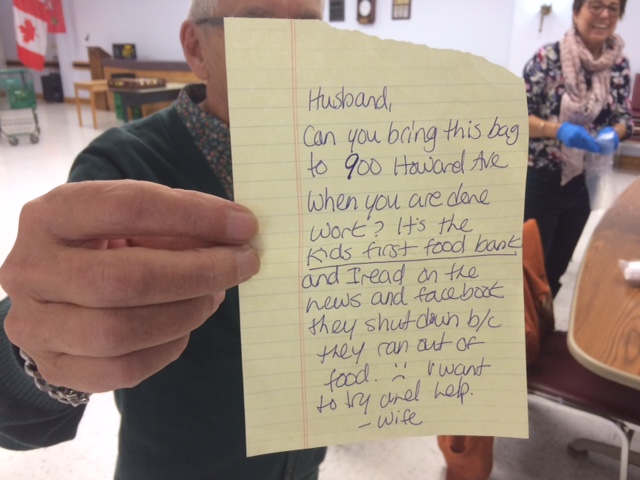 Husband,
Can you bring this bag
to 900 Howard Ave
when you are done
work? It's the
Kids first food bank
and I read on the
news and facebook
they shut down b/c
they ran out of
food. :( I want
to try and help.
- Wife